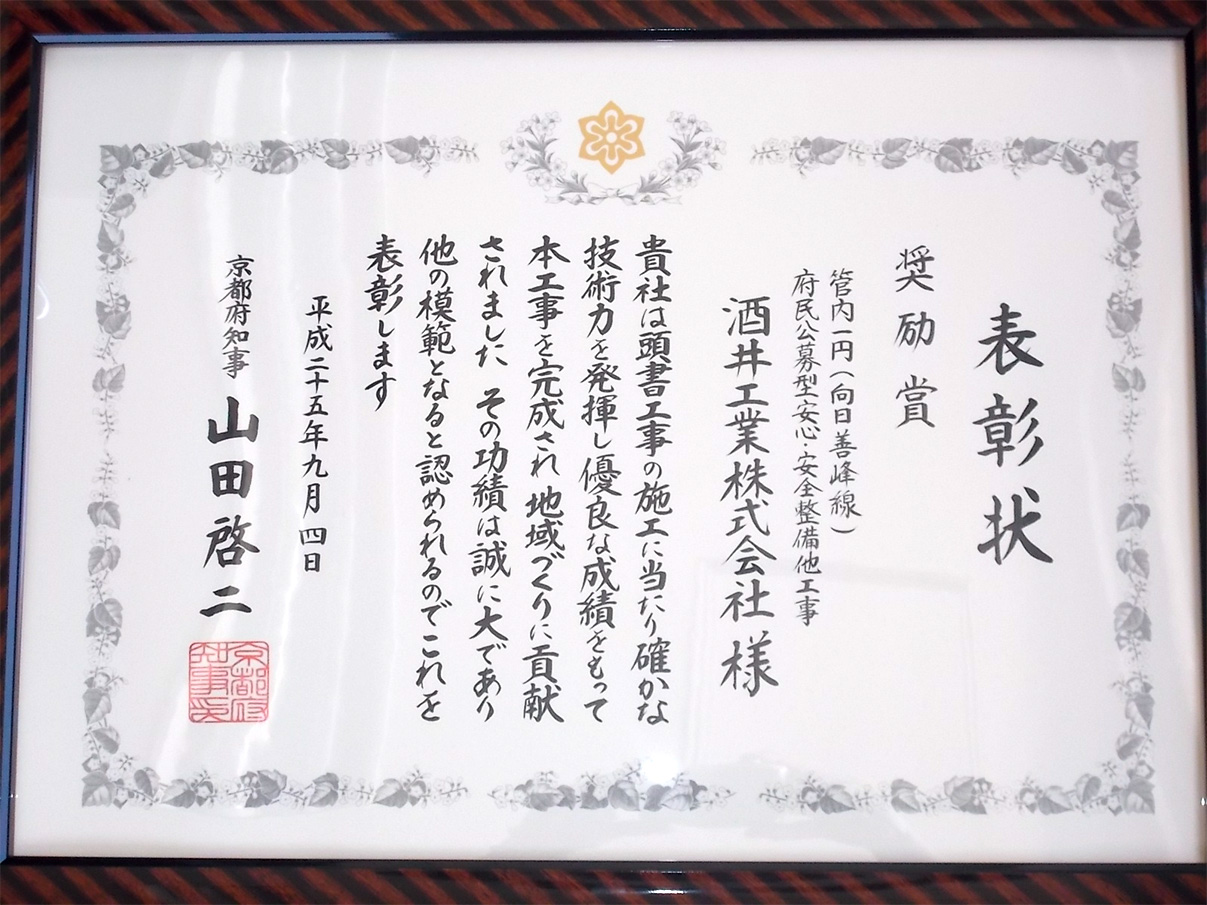 表彰状
奨励賞
管内一円(向日善峰線)
府民公募型安心・安全整備他工事
酒井工業株式会社様
貴社は頭書工事の施工に当たり確かな
技術力を発揮し優良な成績をもって
本工事を完成され地域づくりに貢献
されました その功績は誠に大であり
他の模範となると認められるのでこれを
表彰します
平成二十五年九月四日
京都府知事 山田啓二
京都府
知事印